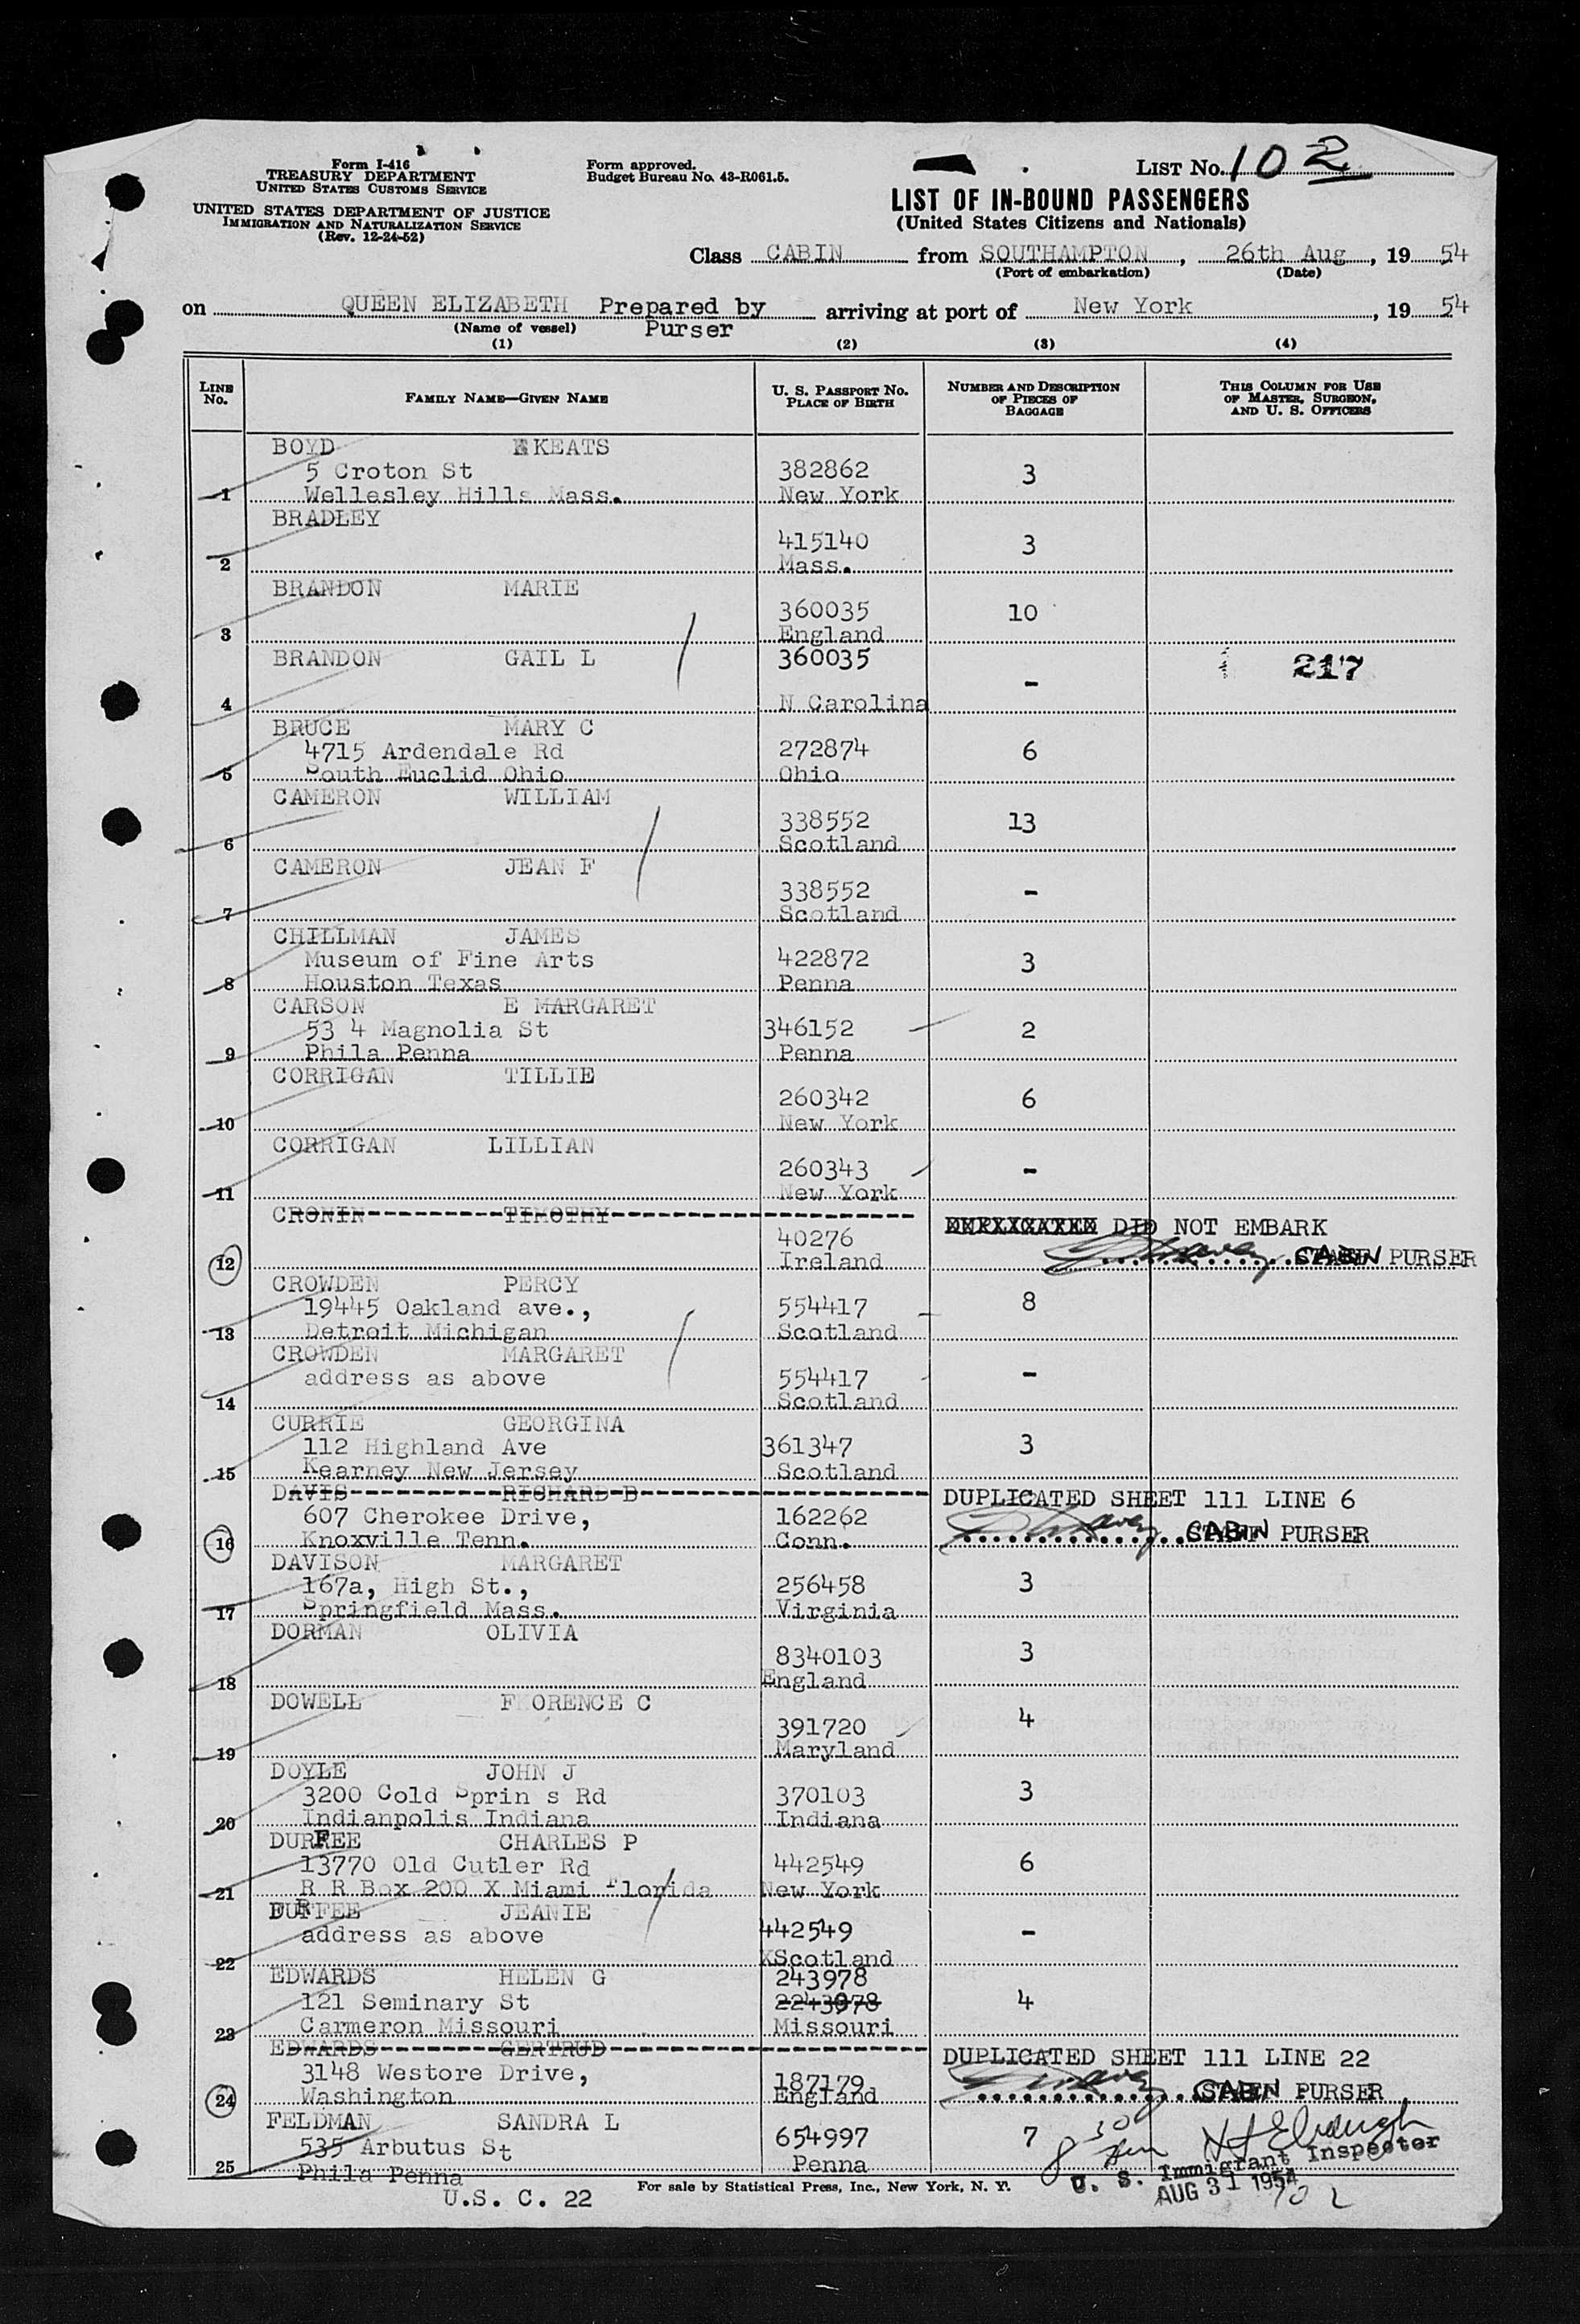 Form I-416
TREASURY DEPARTMENT
UNITED STATES CUSTOMS SERVICE
UNITED STATES DEPARTMENT OF JUSTICE
IMMIGRATION AND NATURALIZATION SERVICE
(Rev. 12-24-52)
Form approved.
Budget Bureau No. 43-R061.5.
LIST No. 102
LIST OF IN-BOUND PASSENGERS
(United States Citizens and Nationals)
Class CABIN from SOUTHAMPTON, 26th Aug, 19 54
(Port of embarkation) (Date)
on QUEEN ELIZABETH Prepared by arriving at port of New York, 19 54
(Name of vessel) Purser
(1) (2) (3) (4)
LINE No. FAMILY NAME—GIVEN NAME U. S. PASSPORT NO. PLACE OF BIRTH NUMBER AND DESCRIPTION OF PIECES OF BAGGAGE THIS COLUMN FOR USE OF MASTER, SURGEON, AND U. S. OFFICERS
BOYD KEATS
5 Croton St 382862 3
1 Wellesley Hills Mass. New York
BRADLEY
415140 3
2 Mass.
BRANDON MARIE
360035 10
3 England
BRANDON GAIL L 360035 217
-
4 N Carolina
BRUCE MARY C
4715 Ardendale Rd 272874 6
5 South Euclid Ohio Ohio
CAMERON WILLIAM
338552 13
6 Scotland
CAMERON JEAN F
338552 -
7 Scotland
CHILLMAN JAMES
Museum of Fine Arts 422872 3
8 Houston Texas Penna
CARSON E MARGARET
53 4 Magnolia St 346152 2
9 Phila Penna Penna
CORRIGAN TILLIE
260342 6
10 New York
CORRIGAN LILLIAN
260343 -
11 New York
CRONIN TIMOTHY DID NOT EMBARK
40276
12 Ireland CABIN PURSER
CROWDEN PERCY
19445 Oakland ave., 554417 8
13 Detroit Michigan Scotland
CROWDEN MARGARET
address as above 554417 -
14 Scotland
CURRIE GEORGINA
112 Highland Ave 361347 3
15 Kearney New Jersey Scotland
DAVIS RICHARD B DUPLICATED SHEET 111 LINE 6
607 Cherokee Drive, 162262
16 Knoxville Tenn. Conn. CABIN PURSER
DAVISON MARGARET
167a, High St., 256458 3
17 Springfield Mass. Virginia
DORMAN OLIVIA
8340103 3
18 England
DOWELL F ORENCE C
391720 4
19 Maryland
DOYLE JOHN J
3200 Cold Sprin s Rd 370103 3
20 Indianpolis Indiana Indiana
DURFEE CHARLES P
13770 Old Cutler Rd 442549 6
21 R R Box 200 X Miami Florida New York
DURFEE JEANIE
address as above 442549 -
22 XScotland
EDWARDS HELEN G 243978
121 Seminary St 2243978 4
23 Carmeron Missouri Missouri
EDWARDS GERTRUD DUPLICATED SHEET 111 LINE 22
3148 Westore Drive, 187179
24 Washington England CABIN PURSER
FELDMAN SANDRA L
535 Arbutus St 654997 7
25 Phila Penna Penna
U. S. Immigrant Inspector
AUG 31 1954
102
U.S. C. 22
For sale by Statistical Press, Inc., New York, N. Y.